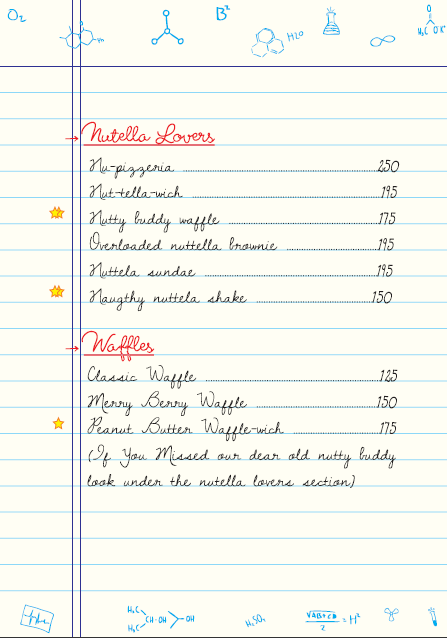 O₂
B²
H₂O
H₃C OR'
→ Nutella Lovers
Nu-pizzeria 250
Nut-tella-wich 195
Nutty buddy waffle 175
Overloaded nuttella brownie 195
Nuttela sundae 195
Naugthy nuttela shake 150
→ Waffles
Classic Waffle 125
Merry Berry Waffle 150
Peanut Butter Waffle-wich 175
(If You Missed our dear old nutty buddy
look under the nutella lovers section)
H₃C
CH-OH OH
H₃C
H₂SO₄
= H²
2